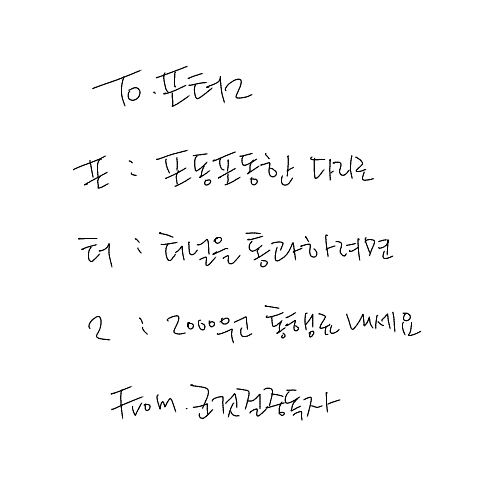 To. 포터2
포 : 포동포동한 다리로
터 : 터널을 통과하려면
2 : 2000원 통행료 내세요
From. 균것걸중독자